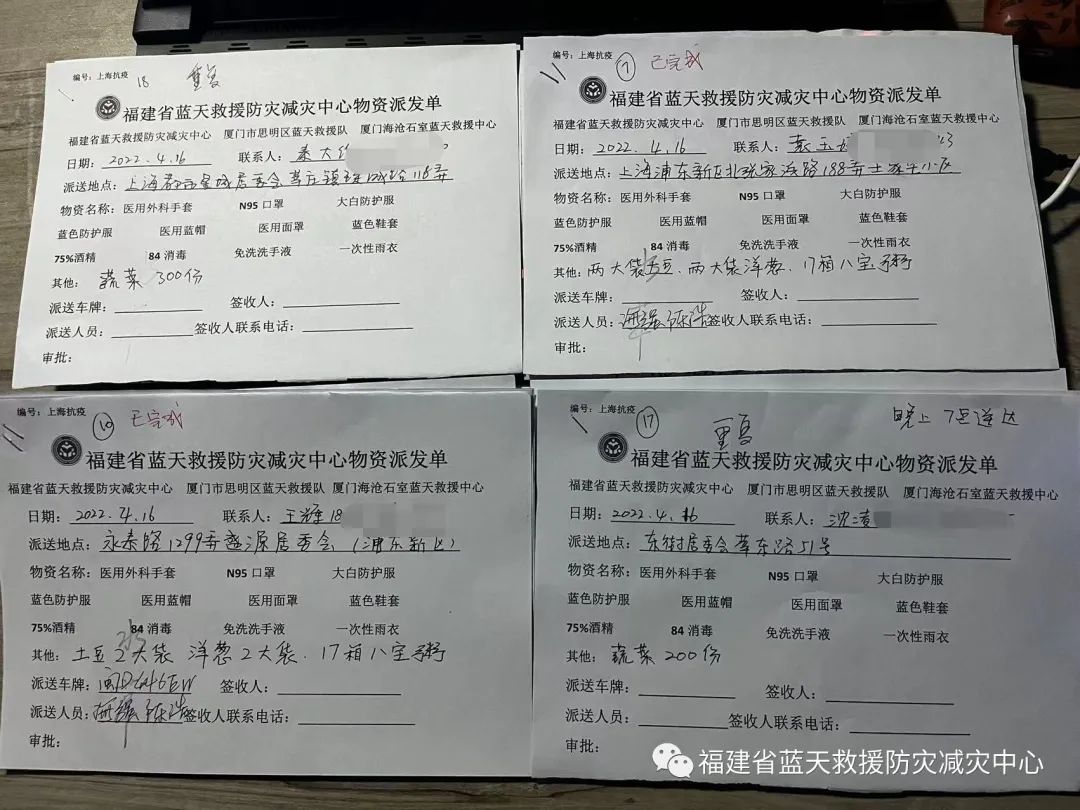 编号：上海抗疫
18 重复
福建省蓝天救援防灾减灾中心物资派发单
福建省蓝天救援防灾减灾中心 厦门市思明区蓝天救援队 厦门海沧石室蓝天救援中心
日期：2022.4.16 联系人：秦大
派送地点：上海 居委会莘庄镇 118弄
物资名称：医用外科手套 N95 口罩 大白防护服
蓝色防护服 医用蓝帽 医用面罩 蓝色鞋套
75%酒精 84 消毒 免洗洗手液 一次性雨衣
其他：蔬菜 300份
派送车牌： 签收人：
派送人员： 签收人联系电话：
审批：
编号：上海抗疫
7 已完成
福建省蓝天救援防灾减灾中心物资派发单
福建省蓝天救援防灾减灾中心 厦门市思明区蓝天救援队 厦门海沧石室蓝天救援中心
日期：2022.4.16 联系人：玉 43
派送地点：上海浦东新区北张家浜路188弄 小区
物资名称：医用外科手套 N95 口罩 大白防护服
蓝色防护服 医用蓝帽 医用面罩 蓝色鞋套
75%酒精 84 消毒 免洗洗手液 一次性雨衣
其他：两大袋土豆、两大袋洋葱、17箱八宝粥
派送车牌： 签收人：
派送人员： 签收人联系电话：
审批：
编号：上海抗疫
10 已完成
福建省蓝天救援防灾减灾中心物资派发单
福建省蓝天救援防灾减灾中心 厦门市思明区蓝天救援队 厦门海沧石室蓝天救援中心
日期：2022.4.16 联系人：王辉 18
派送地点：永泰路1299弄盛源居委会（浦东新区）
物资名称：医用外科手套 N95 口罩 大白防护服
蓝色防护服 医用蓝帽 医用面罩 蓝色鞋套
75%酒精 84 消毒 免洗洗手液 一次性雨衣
其他：土豆2大袋 洋葱2大袋、17箱八宝粥
派送车牌：闽D646EW 签收人：
派送人员： 签收人联系电话：
审批：
编号：上海抗疫
17 重复 晚上7点送达
福建省蓝天救援防灾减灾中心物资派发单
福建省蓝天救援防灾减灾中心 厦门市思明区蓝天救援队 厦门海沧石室蓝天救援中心
日期：2022.4.16 联系人：沈
派送地点：东街居委会莘东路51号
物资名称：医用外科手套 N95 口罩 大白防护服
蓝色防护服 医用蓝帽 医用面罩 蓝色鞋套
75%酒精 84 消毒 免洗洗手液 一次性雨衣
其他：蔬菜 200份
派送车牌： 签收人：
派送人员： 签收人联系电话：
审批：
福建省蓝天救援防灾减灾中心